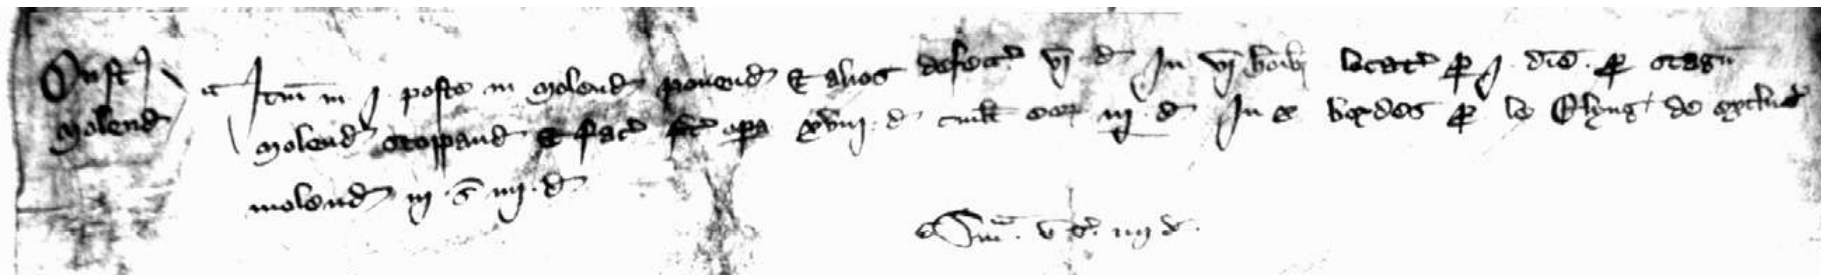 Cust'
molend'
Itm in j poste in molend' ponend' & alios defect' vj d' In vj hoib3 locat' p j die p stagn'
molend' stoppand' & fac' opa xviij d' cuilt eor iij d' In x bordes p le Clyng' de exclus'
molend' iij s iiij d'
Sma v s' iiij d'